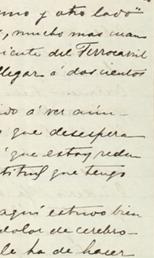 mo y otro lado"
, mucho mas cuan
iente del Ferrocarril
llegar á dos cientos
do á ver ani-
que desespera
que estoy redu
titud que tengo
aquí estuvo bien
dolor de cerebro-
le ha de hacer